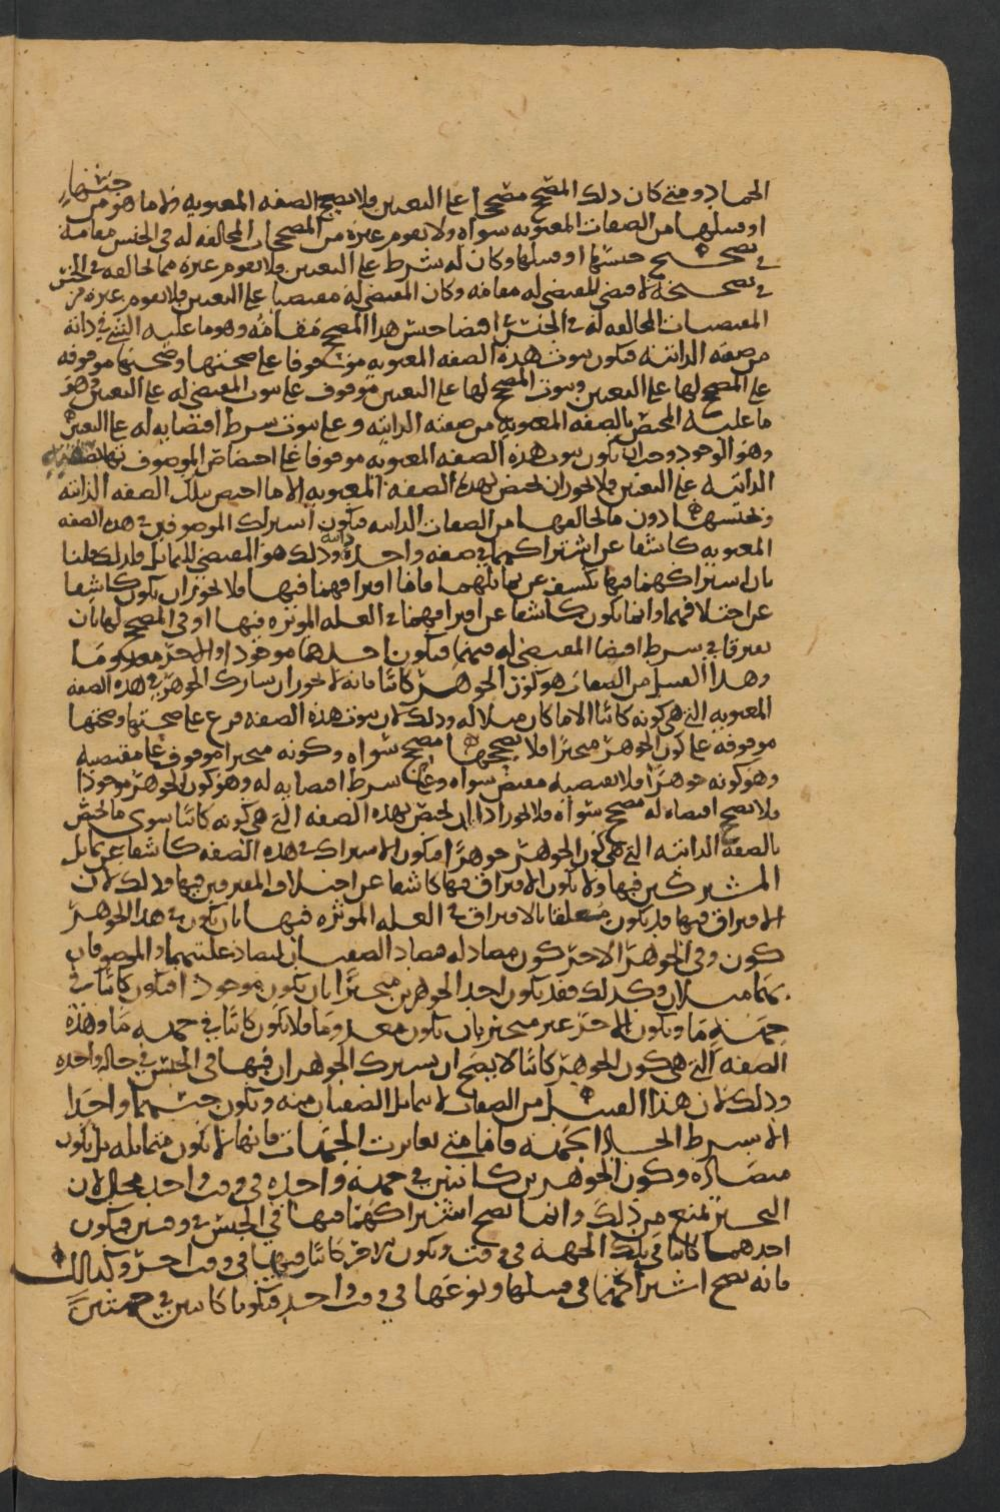 الجماد ومتى كان ذلك المصحح مصححا على التعيين فلا يصحح الصفه المعنويه الا ما هو من جنسها
او قبيلها من الصفات المعنويه سواه ولا يقوم غيره من المصححات المخالفه له في الجنس مقامه
في تصحيح جنسها او قبيلها وكان له شرط على التعيين فلا يقوم غيره مما يخالفه في الجنس
في تصحيحه لا قضى للمقتضى له مقامه وكان المقتضى له مقتضيا على التعيين فلا يقوم غيره من
المقتضيات المخالفه له في الجنس في اقتضا جنس هذا المصحح مقامه وهو ما عليه الشي في ذاته
من صفه الذاتيه فيكون ثبوت هذه الصفه المعنويه موقوفا على صحتها وصحتها موقوفه
على المصحح لها على التعيين وثبوت المصحح لها على التعيين موقوف على ثبوت المقتضى له على التعيين وهو
ما عليه المختص بالصفه المعنويه من صفته الذاتيه وعلى ثبوت شرط اقتضايه له على التعيين
وهو الوجود وجب ان يكون ثبوت هذه الصفه المعنويه موقوفا على اختصاص الموصوف بها
الذاتيه على التعيين فلا يجوز ان يختص بهذه الصفه المعنويه الا ما اختص بتلك الصفه الذاتيه
وبجنسها دون ما يخالفها من الصفات الذاتيه فيكون اشتراك الموصوفين في هذه الصفه
المعنويه كاشفا عن اشتراكهما في صفه واحده ذاتيه وذلك هو المقتضى للتماثل فلذلك قلنا
بان اشتراكهما فيها يكشف عن تماثلهما فاما افتراقهما فيها فلا يجوز ان يكون كاشفا
عن اختلافهما وانما يكون كاشفا عن افتراقهما في العله الموثره فيها او في المصحح لها بان
يفترقا في شرط اقتضا المقتضى له فيهما فيكون احدهما موجودا والاخر معدوما
وهذا القبيل من الصفات هو كون الجوهر كاينا فانه لا يجوز ان يشارك الجوهر في هذه الصفه
المعنويه التي هي كونه كاينا الا ما كان مثلا له وذلك لان ثبوت هذه الصفه فرع على صحتها وصحتها
موقوفه على كون الجوهر متحيزا فلا يصححها مصحح سواه وكونه متحيزا موقوف على مقتضيه
وهو كونه جوهرا فلا يقتضيه مقتض سواه وعلى شرط اقتضايه له وهو كون الجوهر موجودا
فلا يصح اقتضاه له مصحح سواه فلا يجوز اذا ان يختص بهذه الصفه التي هي كونه كاينا سوى ما يختص
بالصفه الذاتيه التي هي كون الجوهر جوهرا فيكون الاشتراك في هذه الصفه كاشفا عن تماثل
المشتركين فيها ولا يكون الافتراق فيها كاشفا عن اختلاف المفترقين فيها وذلك لان
الافتراق فيها قد يكون متعلقا بالافتراق في العله الموثره فيها بان يكون في هذا الجوهر
كون وفي الجوهر الاخر كون مضاد له فتضاد الصفتان لتضاد علتيهما والموصوفان
بهما مثلان وكذلك فقد يكون احد الجوهرين متحيزا بان يكون موجودا فيكون كاينا في
جهه ما ويكون الاخر غير متحيز بان يكون معدوما فلا يكون كاينا في جهه ما وهذه
الصفه التي هي كون الجوهر كاينا لا يصح ان يشترك الجوهران فيها في الجنس في حاله واحده
وذلك لان هذا القبيل من الصفات لا يتماثل الصفتان منه ويكون جنسهما واحدا
الا بشرط اتحاد الجهه فاما متى تغايرت الجهات فانها لا يكون متماثله بل يكون
متضاده وكون الجوهرين كاينين في جهه واحده في وقت واحد محال لان
التحيز يمنع من ذلك وانما يصح اشتراكهما فيها في الجنس في وقتين فيكون
احدهما كاينا في تلك الجهه في وقت ويكون الاخر كاينا فيها في وقت اخر وكذلك
فانه يصح اشتراكهما في قبيلها ونوعها في وقت واحد فيكونا كاينين في جهتين